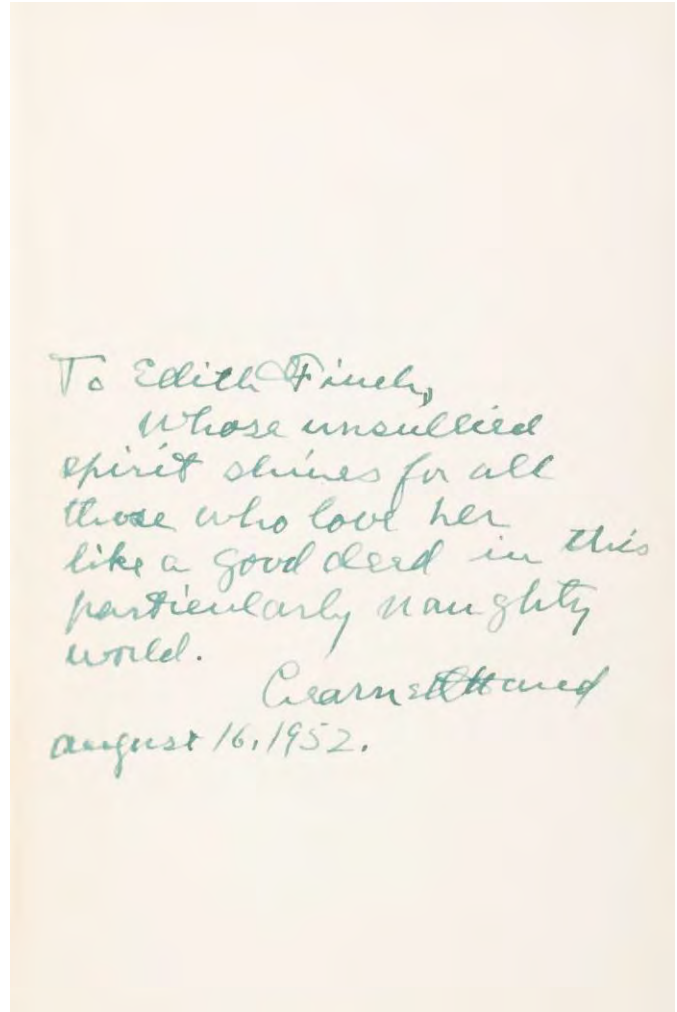 To Edith Finch,
Whose unsullied
spirit shines for all
those who love her
like a good deed in this
particularly naughty
world.
Learned Hand
August 16, 1952.